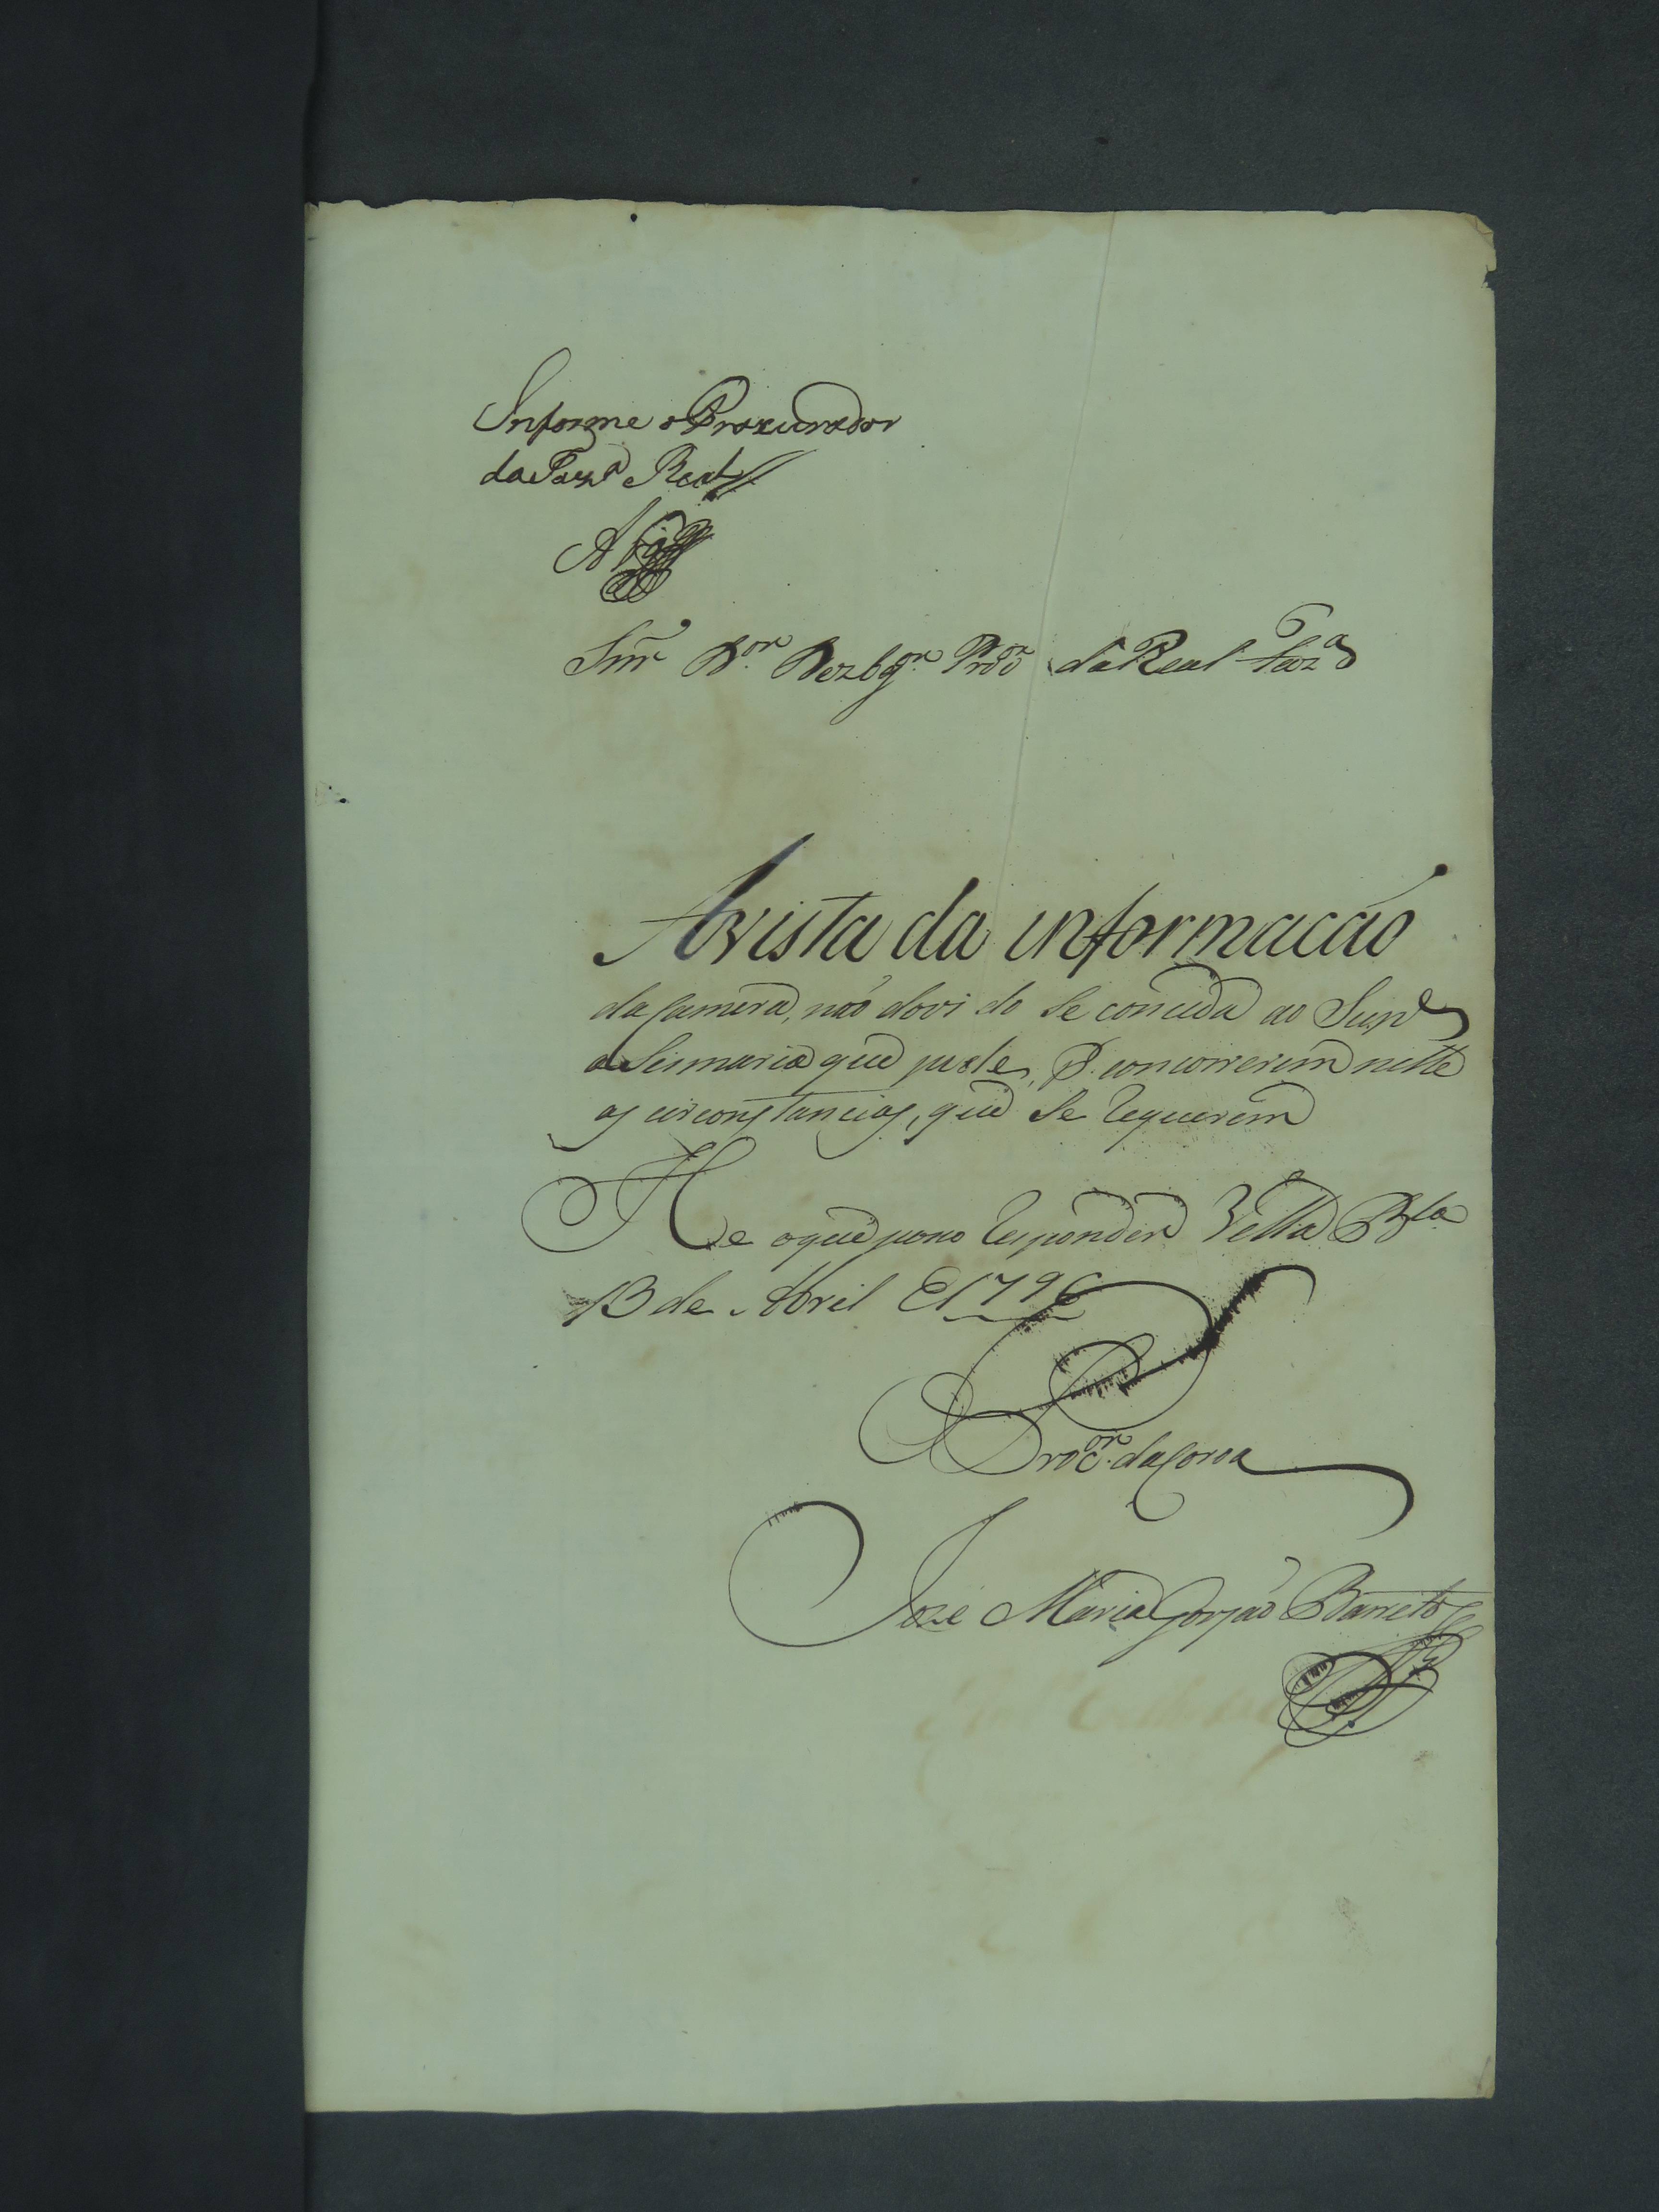 Informe o Procurador
da Fazdª Real
Snr Dor Dezbgor Procor da Real Fazª
Avista da informacáo
da Camera, naó dovido se conceda ao Supe
a Sismaria que pede, P. concorrerem nelle
as circonstancias, que se requerem
He o que poso responder Villa Bla
13 de Abril 1796
Procor. da Coroa
Joze Maria Gorjaó Barreto